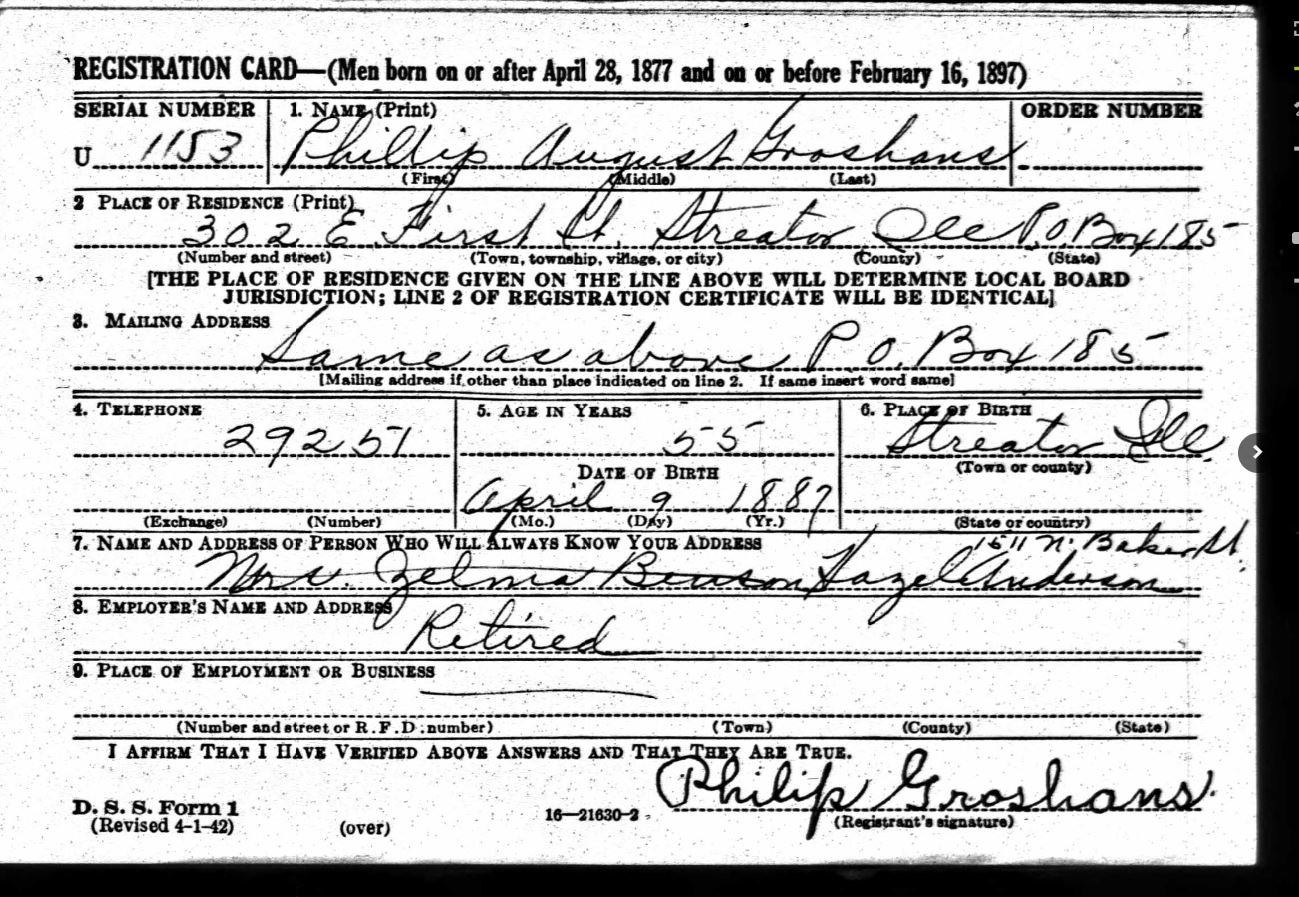 REGISTRATION CARD—(Men born on or after April 28, 1877 and on or before February 16, 1897)
SERIAL NUMBER
1. NAME (Print)
ORDER NUMBER
U 1153
Phillip August Groshans
(First) (Middle) (Last)
2 PLACE OF RESIDENCE (Print)
302 E First St. Streator Ill P.O. Box 185
(Number and street) (Town, township, village, or city) (County) (State)
[THE PLACE OF RESIDENCE GIVEN ON THE LINE ABOVE WILL DETERMINE LOCAL BOARD
JURISDICTION; LINE 2 OF REGISTRATION CERTIFICATE WILL BE IDENTICAL]
3. MAILING ADDRESS
Same as above P.O. Box 185
[Mailing address if other than place indicated on line 2. If same insert word same]
4. TELEPHONE
5. AGE IN YEARS
6. PLACE OF BIRTH
29251
55
Streator Ill.
(Town or county)
DATE OF BIRTH
April 9 1887
(Exchange) (Number)
(Mo.) (Day) (Yr.)
(State or country)
7. NAME AND ADDRESS OF PERSON WHO WILL ALWAYS KNOW YOUR ADDRESS
1511 N. Baker St.
Mrs. Zelma Benson Hazel Anderson
8. EMPLOYER'S NAME AND ADDRESS
Retired
9. PLACE OF EMPLOYMENT OR BUSINESS
(Number and street or R.F.D. number) (Town) (County) (State)
I AFFIRM THAT I HAVE VERIFIED ABOVE ANSWERS AND THAT THEY ARE TRUE.
Philip Groshans
D. S. S. Form 1
(Revised 4-1-42) (over)
16—21630-2
(Registrant's signature)